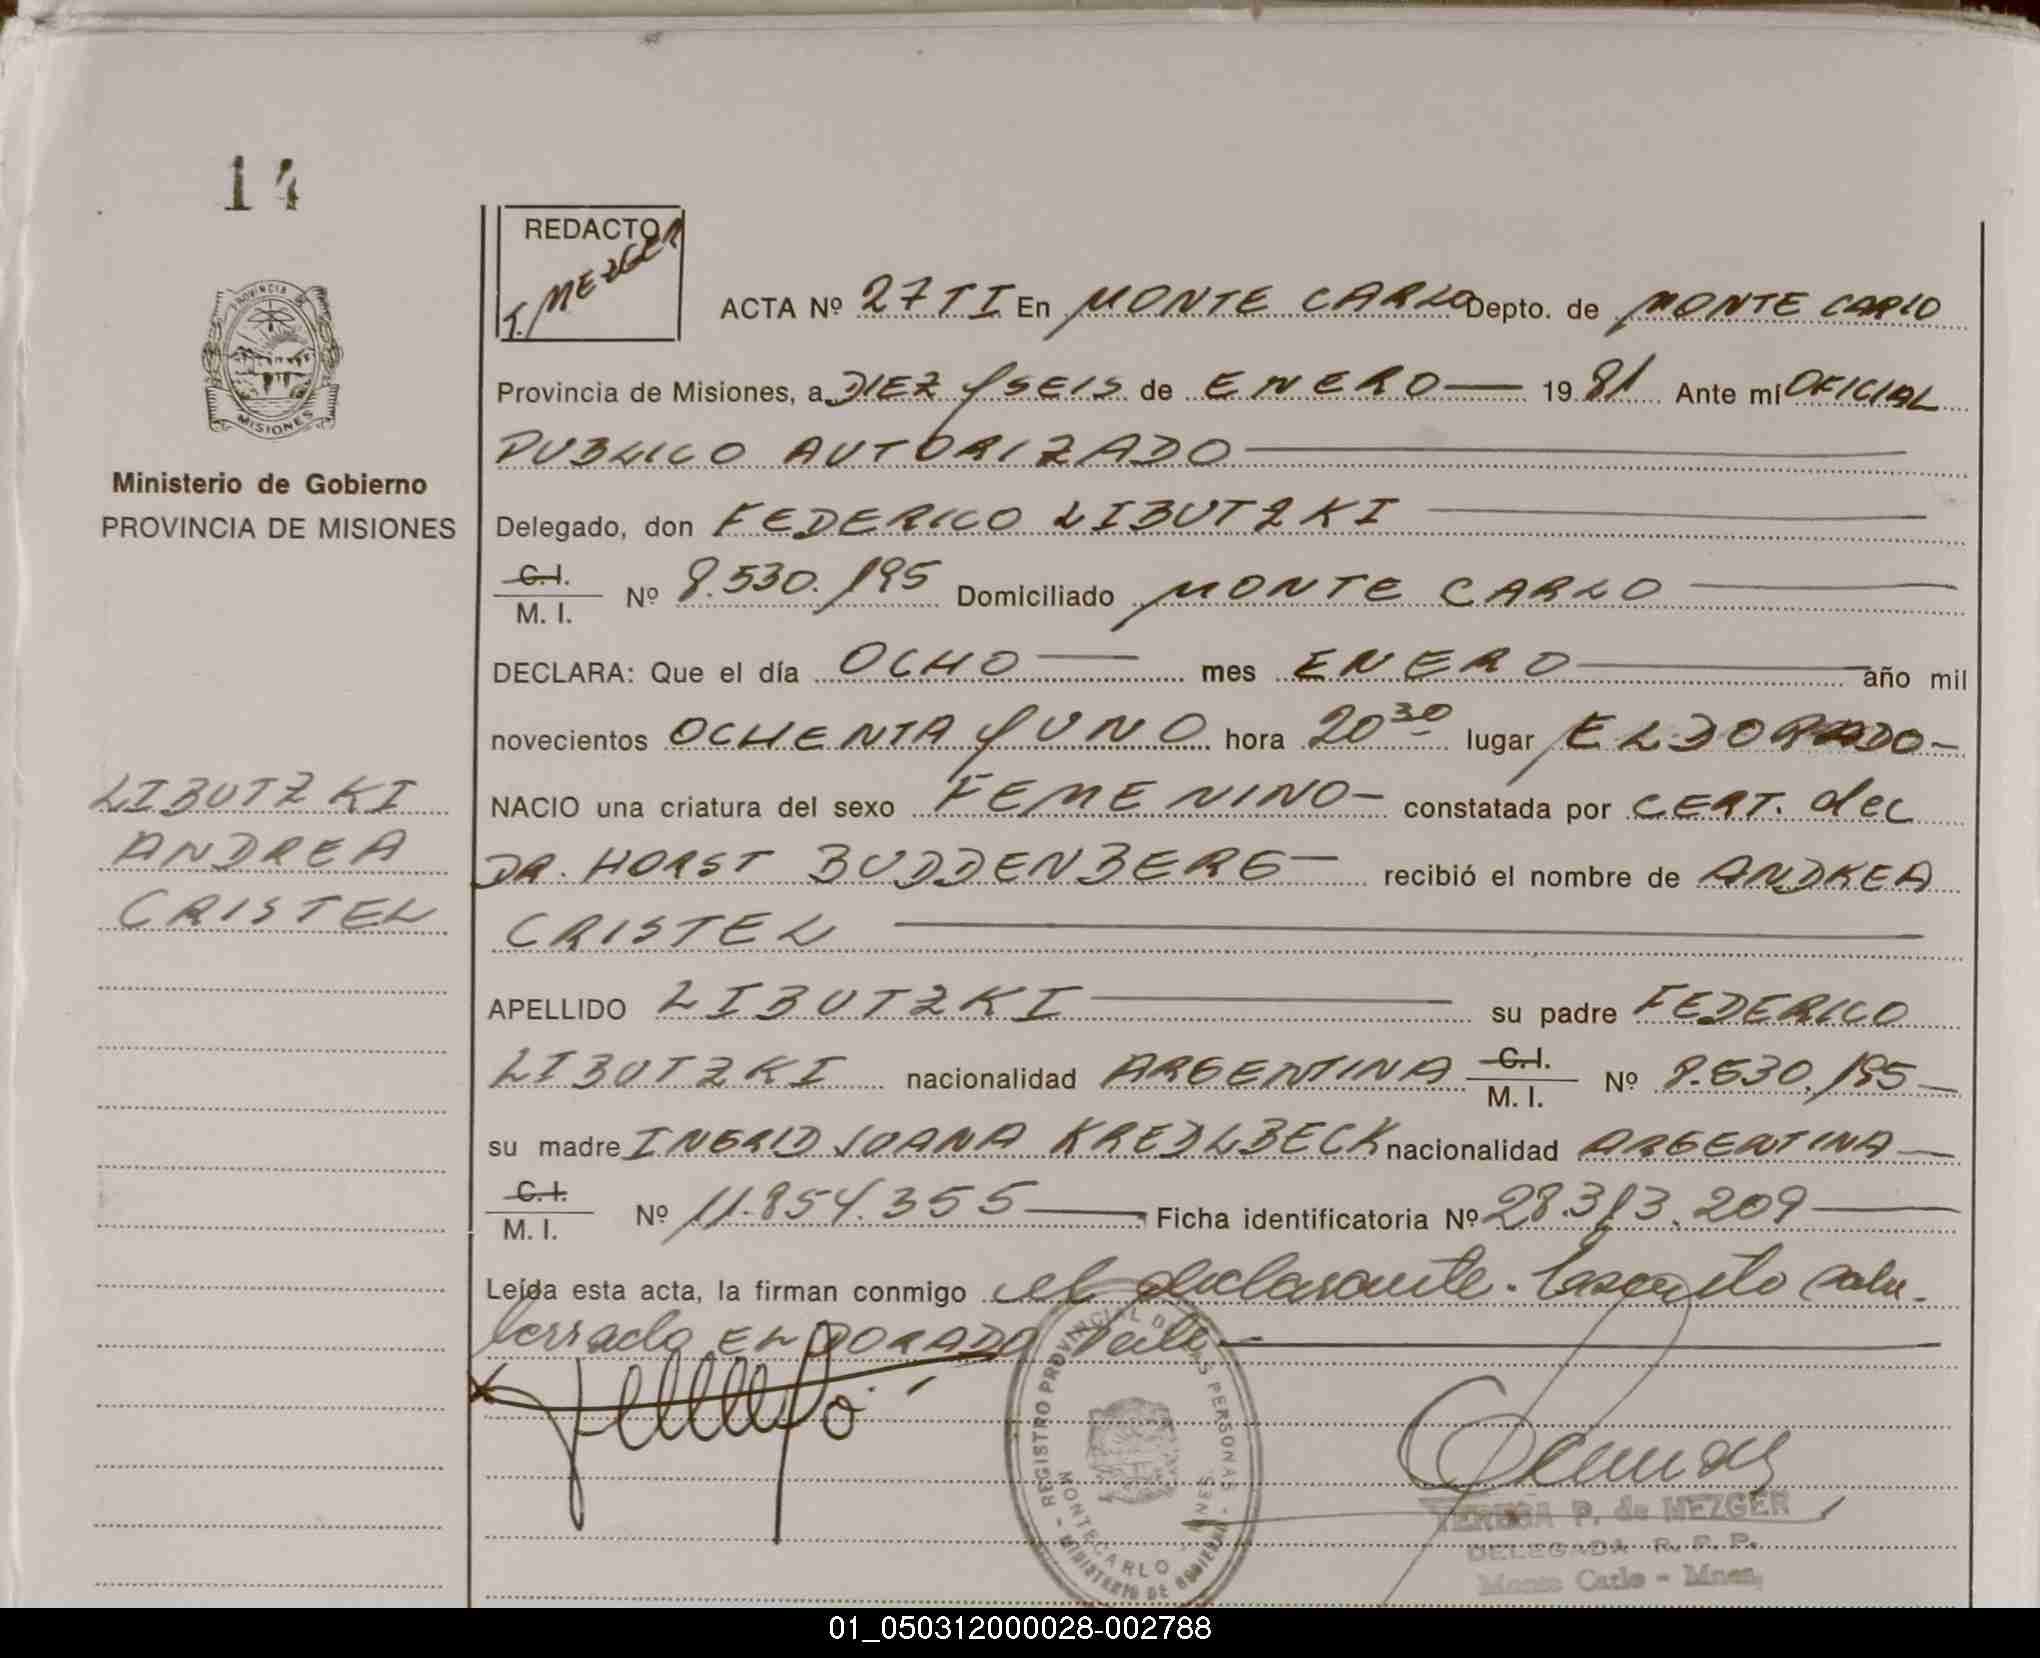 14
REDACTO
T. MEZGER
ACTA Nº 27 TI En MONTE CARLO Depto. de MONTE CARLO
Provincia de Misiones, a DIEZ y SEIS de ENERO 19 81 Ante mí OFICIAL
PUBLICO AUTORIZADO
Delegado, don FEDERICO LIBUTZKI
C.I. / M. I. Nº 8.530.195 Domiciliado MONTE CARLO
DECLARA: Que el día OCHO mes ENERO año mil
novecientos OCHENTA y UNO hora 20 30 lugar ELDORADO
NACIO una criatura del sexo FEMENINO constatada por CERT. del
DR. HORST BUDDENBERG recibió el nombre de ANDREA
CRISTEL
APELLIDO LIBUTZKI su padre FEDERICO
LIBUTZKI nacionalidad ARGENTINA C.I. / M. I. Nº 8.530.195
su madre INGRID JOANA KREDLBECK nacionalidad ARGENTINA
C.I. / M. I. Nº 11.854.355 Ficha identificatoria Nº 28.313.209
Leída esta acta, la firman conmigo el declarante.
ELDORADO Vale
PROVINCIA DE
MISIONES
Ministerio de Gobierno
PROVINCIA DE MISIONES
LIBUTZKI
ANDREA
CRISTEL
REGISTRO PROVINCIAL DE LAS PERSONAS - MINISTERIO DE GOBIERNO
MONTECARLO
TERESA P. de MEZGER
DELEGADA R. P. P.
Monte Carlo - Mnes.
01_050312000028-002788